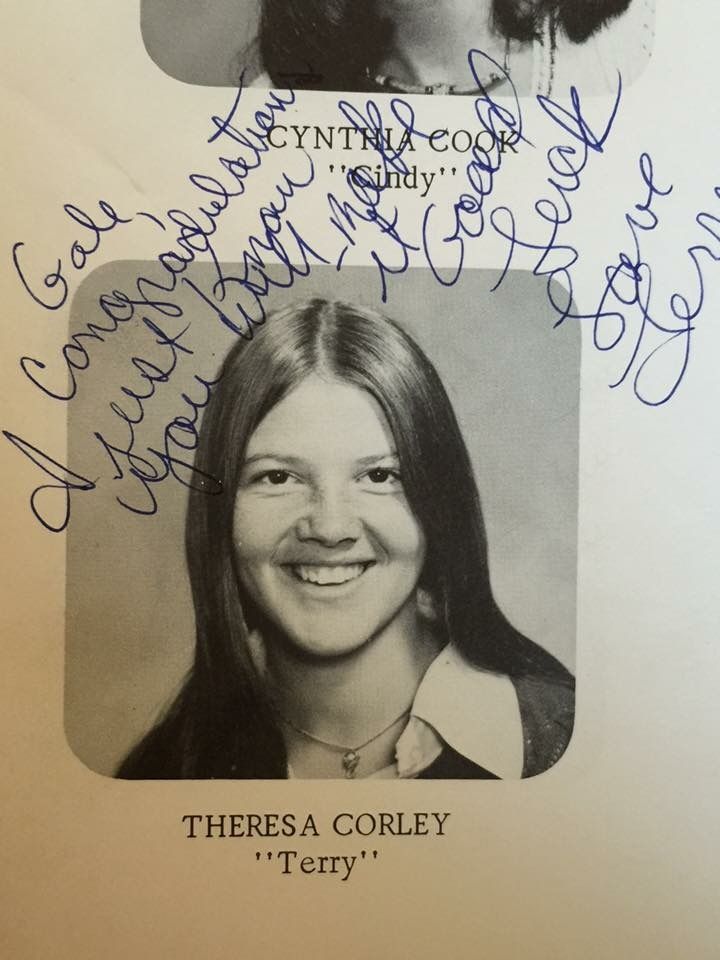 CYNTHIA COOK
''Cindy''
Gale,
Congradulation
I Just know
you will make it
Good Luck
Love
THERESA CORLEY
''Terry''